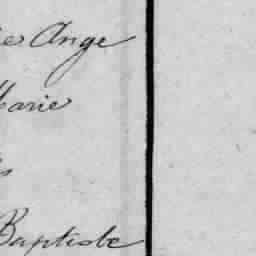 Ange
Marie
Baptiste